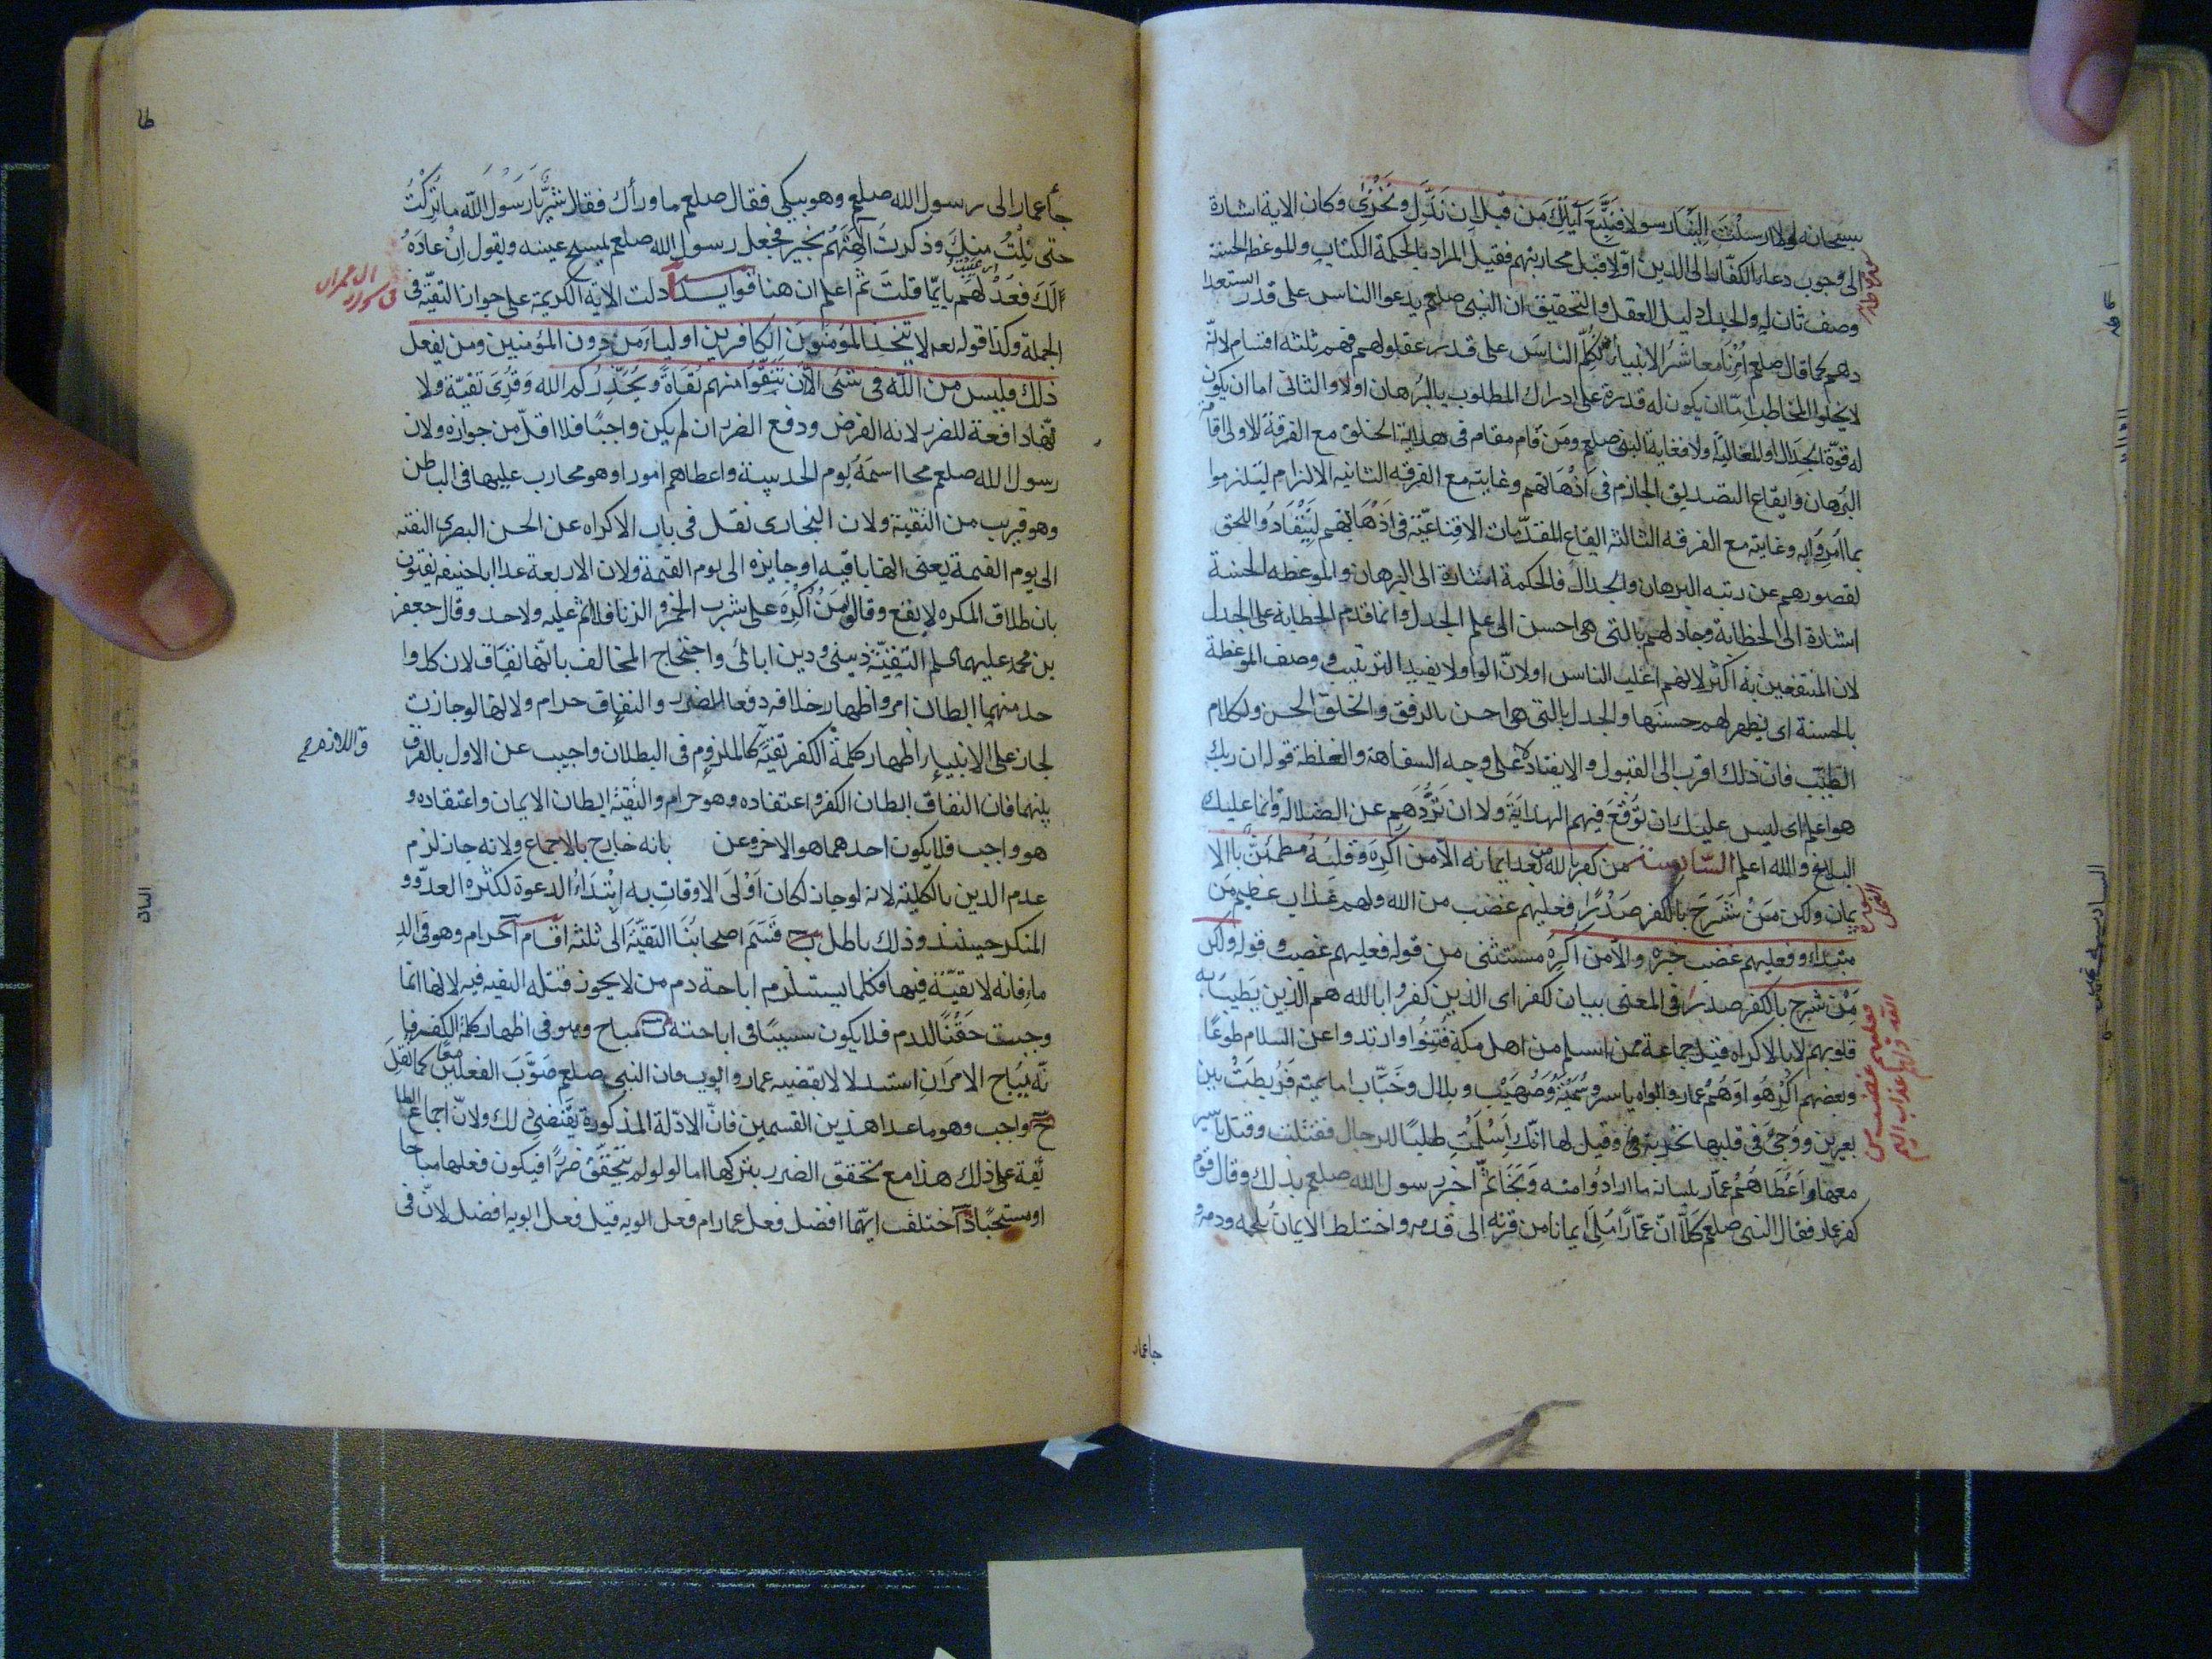 سبحانه لولا ارسلت الينا رسولا فنتبع آياتك من قبل ان نذل ونخزى وكان الاية اشارة
الى وجوب دعاء الكفار الى الدين اولا قبل محاربتهم فقيل المراد بالحكمة الكتاب والموعظة الحسنة
وصف ثان له والجدل دليل العقل والتحقيق ان النبى صلعم يدعوا الناس على قدر استعدا
دهم كما قال صلعم امرنا معاشر الانبيا ان نكلم الناس على قدر عقولهم فهم ثلثة اقسام لانه
لا يخلوا المخاطب اما ان يكون له قدرة على ادراك المطلوب بالبرهان اولا والثانى اما ان يكون
له قوة الجدال والمغالبة اولا فغاية النبى صلعم ومن قام مقام فى هداية الخلق مع الفرقة الاولى اقامة
البرهان وايقاع التصديق الجازم فى اذهانهم وغايته مع الفرقه الثانيه الالزام ليلتزموا
بما امروا به وغايته مع الفرقه الثالثه ايقاع المقدمات الاقناعية فى اذهانهم لينقادوا للحق
لقصورهم عن رتبه البرهان والجدال فالحكمة اشارة الى البرهان والموعظه الحسنة
اشارة الى الخطابة وجادلهم بالتى هى احسن الى علم الجدل وانما قدم الخطابة على الجدل
لان المنتفعين به اكثر لانهم اغلب الناس اولان الواو لا يفيد الترتيب ووصف الموعظة
بالحسنة اى يظهر لهم حسنها والجدل بالتى هى احسن بالرفق والخلق الحسن والكلام
الطيب فان ذلك اقرب الى القبول والانقياد لا على وجه السفاهة والغلظة قوله ان ربك
هو اعلم اى ليس عليك ان توقع فيهم الهداية ولا ان تردهم عن الضلالة وانما عليك
البلاغ والله اعلم السابعة من كفر بالله من بعد ايمانه الا من اكره وقلبه مطمئن بالا
يمان ولكن من شرح بالكفر صدرا فعليهم غضب من الله ولهم عذاب عظيم من
مبتداء وفعليهم غضب خبره والا من اكره مستثنى من قوله فعليهم غضب وقوله ولكن
من شرح بالكفر صدرا فى المعنى بيان لكفر اى الذين كفروا بالله هم الذين يطيب به
قلوبهم لا بالاكراه قيل جماعة ممن اسلم من اهل مكة فتنوا وارتدوا عن السلام طوعا
وبعضهم اكرهوا وهم عمار وابواه ياسر وسمية وصهيب وبلال وخباب اما سمية فربطت بين
بعيرين ووجئ فى قلبها بحربة وقيل لها انك اسلمت طلبا للرجال فقتلت وقتل ياسر
معها واعطاهم عمار بلسانه ما ارادوا منه ونجا ثم اخبر رسول الله صلعم بذلك وقال قوم
كفر عمار فقال النبى صلعم كلا ان عمارا ملئ ايمانا من قرنه الى قدمه واختلط الايمان بلحمه ودمه و
جا عمار
جا عمار الى رسول الله صلعم وهو يبكى فقال صلعم ما وراك فقال شر يا رسول الله ما تركت
حتى نلت منك وذكرت الهتهم بخير فجعل رسول الله صلعم يمسح عينيه ويقول ان عادوا
لك فعد لهم بما قلت ثم اعلم ان هنا فوايد آ دلت الاية الكريمة على جواز التقية فى
ال عمران
الجملة وكذا قوله تعه لا يتخذ المؤمنون الكافرين اولياء من دون المؤمنين ومن يفعل
ذلك فليس من الله فى شئ الا ان تتقوا منهم تقاة ويحذركم الله وقرى تقية ولا
نها دافعة للضرر لانه الفرض ودفع الضرر ان لم يكن واجبا فلا اقل من جوازه ولان
رسول الله صلعم محا اسمه يوم الحديبية واعطاهم امورا وهو محارب عليها فى الباطن
وهو قريب من التقية ولان البخارى نقل فى باب الاكراه عن الحسن البصرى التقية
الى يوم القيمة يعنى انها باقيه او جايزه الى يوم القيمة ولان الاربعة عدا ابا حنيفه يفتون
بان طلاق المكره لا يقع وقالوا من اكره على شرب الخمر والزنا فلا اثم عليه ولا حد وقال جعفر
بن محمد عليهما السلم التقية دينى ودين ابائى واحتجاج المخالف بانها نفاق لان كل وا
حد منهما ابطان امر واظهار خلافه دفعا للضرر والنفاق حرام ولانها لو جازت
لجاز على الانبياء اظهار كلمة الكفر تقية كالملزوم فى البطلان واجيب عن الاول بالفرق
بينهما فان النفاق ابطان الكفر واعتقاده وهو حرام والتقية ابطان الايمان واعتقاده و
هو واجب فلا يكون احدهما هو الاخر وعن بانه خارج بالاجماع ولانه جاز لزم
عدم الدين بالكلية لانه لو جاز لكان اولى الاوقات به ابتداء الدعوة لكثرة العدو و
المنكر حينئذ وذلك باطل ب قسم اصحابنا التقية الى ثلثة اقسام آ حرام وهو فى الد
ماء فانه لا تقية فيها فكلما يستلزم اباحة دم من لا يجوز قتله التقيه فيه لانها انما
وجبت حقنا للدم فلا يكون سببا فى اباحته ب مباح وهو فى اظهار كلمة الكفر فا
نه يباح الامران استدلالا بقضيه عمار وابويه فان النبى صلعم صوب الفعلين معا كما نقل
ج واجب وهو ما عدا هذين القسمين فان الادلة المذكورة يقتضى ذلك ولان اجماع الطا
ئفة على ذلك هذا مع تحقق الضرر بتركها اما لو لم يتحقق ضررا فيكون فعلها مباحا
او مستحبا د اختلف ايهما افضل فعل عمار ام فعل ابويه قيل فعل ابويه افضل لان فى